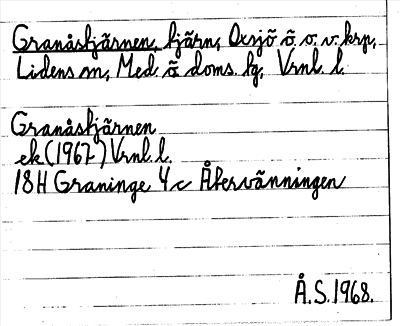 Granåstjärnen, tjärn, Oxsjö ö. o. v. krp,
Lidens sn, Med. ö doms. tg, Vrnl. l.
Granåstjärnen
ek (1967) Vrnl. l.
18H Graninge 4c Återvänningen
Å.S. 1968.